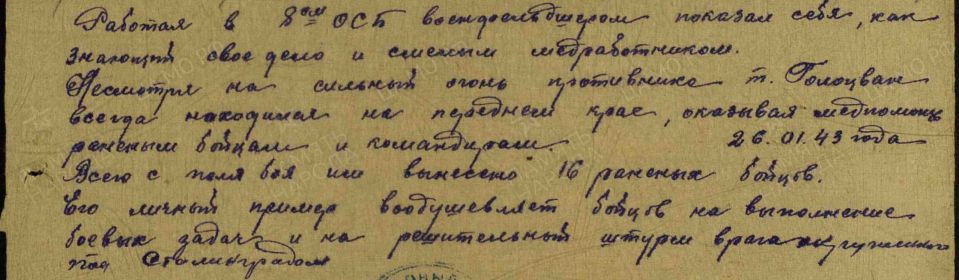 Работая в 8ом ОСБ военфельдшером показал себя, как
знающий свое дело и смелым медработником.
Несмотря на сильный огонь противника т. Голоцван
всегда находился на переднем крае, оказывая медпомощь
раненым бойцам и командирам 26.01.43 года
Всего с поля боя им вынесено 16 раненых бойцов.
Его личный пример воодушевляет бойцов на выполнение
боевых задач и на решительный штурм врага окруженного
под Сталинградом